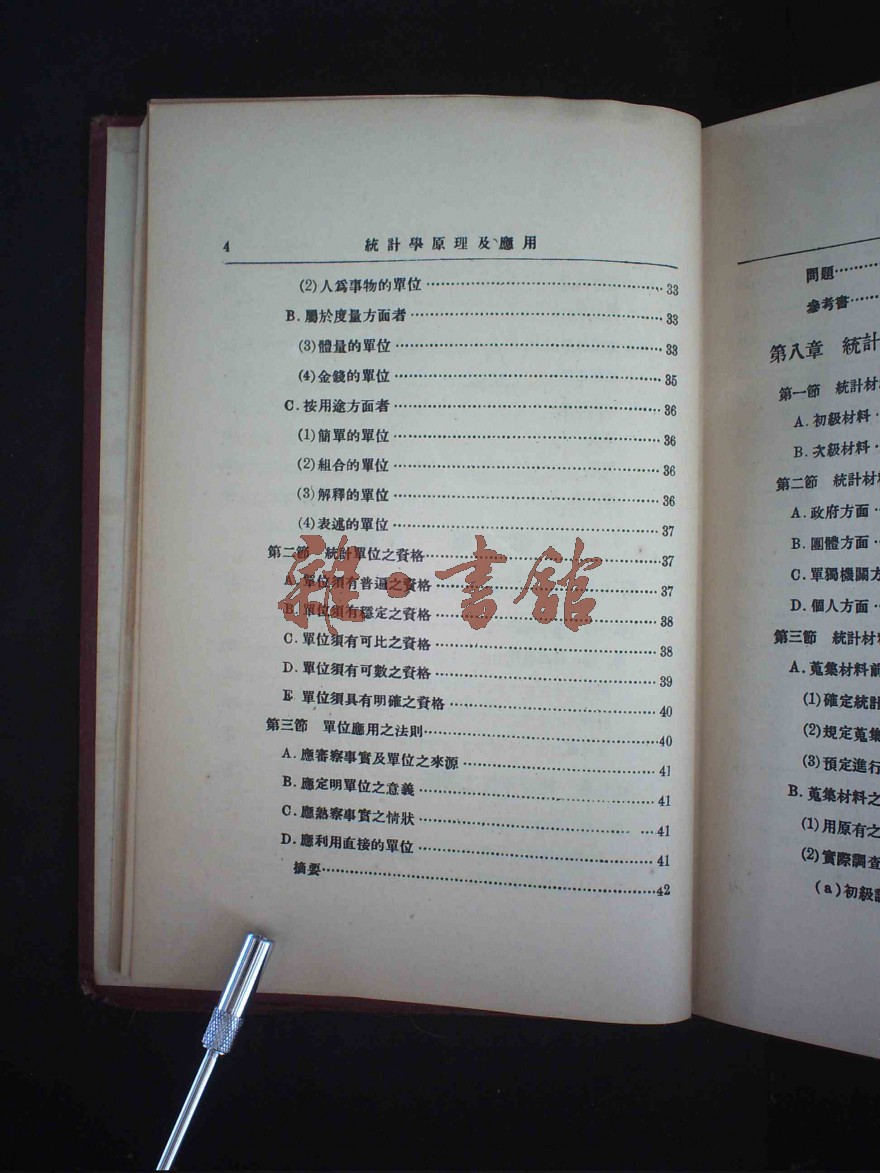 4 統計學原理及應用
(2)人爲事物的單位 33
B.屬於度量方面者 33
(3)體量的單位 33
(4)金錢的單位 35
C.按用途方面者 36
(1)簡單的單位 36
(2)組合的單位 36
(3)解釋的單位 36
(4)表述的單位 37
第二節 統計單位之資格 37
A.單位須有普遍之資格 37
B.單位須有穩定之資格 38
C.單位須有可比之資格 38
D.單位須有可數之資格 39
E 單位須具有明確之資格 40
第三節 單位應用之法則 40
A.應審察事實及單位之來源 41
B.應定明單位之意義 41
C.應熟察事實之情狀 41
D.應利用直接的單位 41
摘要 42
雜·書館
問題
參考書
第八章 統計
第一節 統計材
A.初級材料
B.次級材料
第二節 統計材
A.政府方面
B.團體方面
C.單獨機關方
D.個人方面
第三節 統計材
A.蒐集材料前
(1)確定統計
(2)規定蒐集
(3)預定進行
B.蒐集材料之
(1)用原有之
(2)實際調查
(a)初級